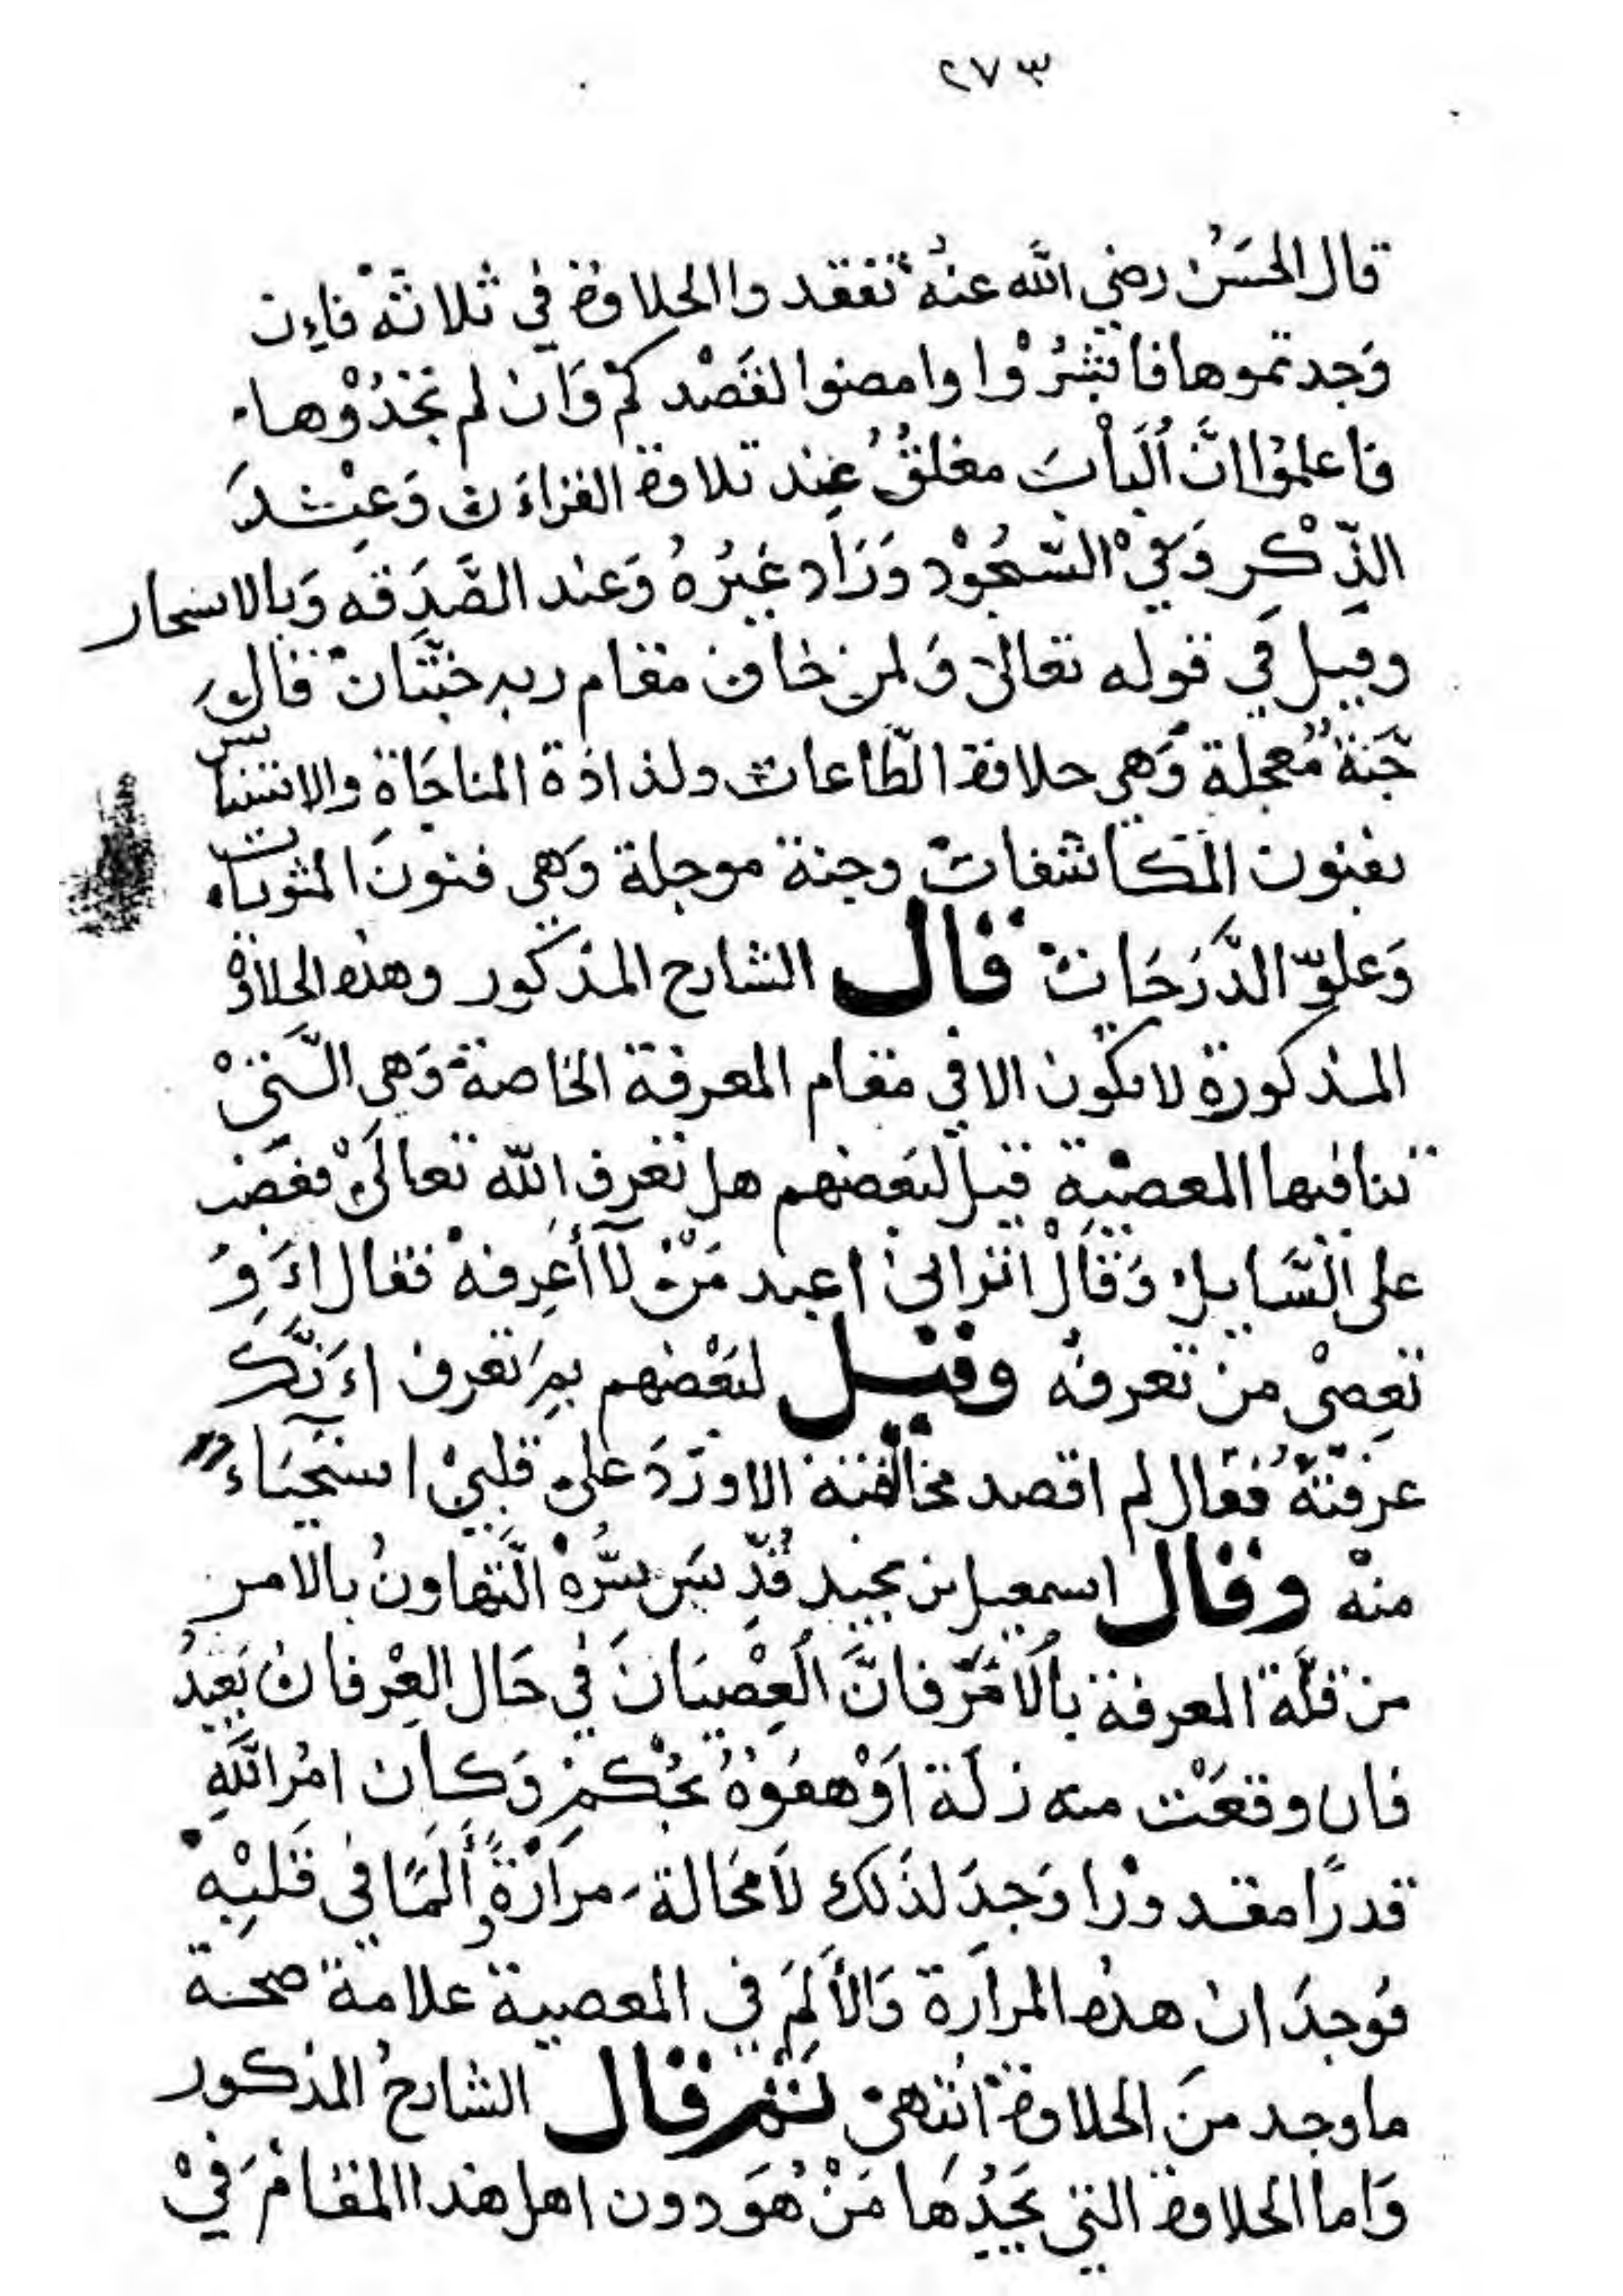 ٢٧٣
قال الحسَنُ رضي الله عنهُ تفقدوا الحلاوة في ثلاثة فإن
وَجدتموها فابشرُوا وامضوا لقَصْدكمْ وَان لم تجدُوْها
فاعلمُوا انَّ اَلبابَ مغلقُ عِند تلاوة القراءَن وَعِنْدَ
الذِّكْرِ وَفيْ السُّجُوْد وَزَاد غيرُهُ وَعند الصَّدَقه وَبالاسحار
وقيل في قوله تعالى وَلمن خاف مقام ربه جنَّتَان قالَ
جَنة مُعجلة وَهي حلاوة الطّاعات ولذاذة المناجَاةِ والاستيناس
بفنون المكاشفات وجنة موجلة وَهي فنونَ المثوبات
وَعلوّ الدَّرَجَات قال الشارح المذكور وهذه الحلاوة
المذكورة لا تكون الا في مقام المعرفة الخاصة وَهي الَّتيْ
تنافيها المعصية قيل لبَعضهم هل تعرف الله تعالىْ فغضَب
على السَّايل وَقَالْ اتراني اعبد مَنْ لآ أعرِفهْ فقال اءَوَ
تعِصىْ من تعرفهُ وقيل لبَعْضهم بمَ تعرف اءَنَّكَ
عرَفتَهُ فقال لم اقصد مخالفته الا ورَدَ علىَ قلبيْ استحيَاءً
منهْ وقال اسمعيل بن نجيد قُدِّسَ سِرُّهْ الَّتهاونُ بالامر
من قلَّة المعرفة باُلآمَرّ فانَّ اَلعِصْيَانَ في حَال العِرْفان بَعيدُ
فان وقعَتْ منه زلَة اَوْ هفوَةُ بحُكمْ وَكان امُر اللَّهِ
قدرًا مقدورًا وَجدَ لذَلك لَا محَالة مرَارَةً وألمًا في قَلبِهْ
فوُجدَ ان هذه المرارَة وَالأَلمَ في المعصية علامة صحة
ما وجد منَ الحلاوة انتهىَ ثم قال الشارحُ المذكور
وَاما الحلاوة التي يَجَدُهَا مَنْ هُوَ دون اهل هذا المقامْ فَيْ